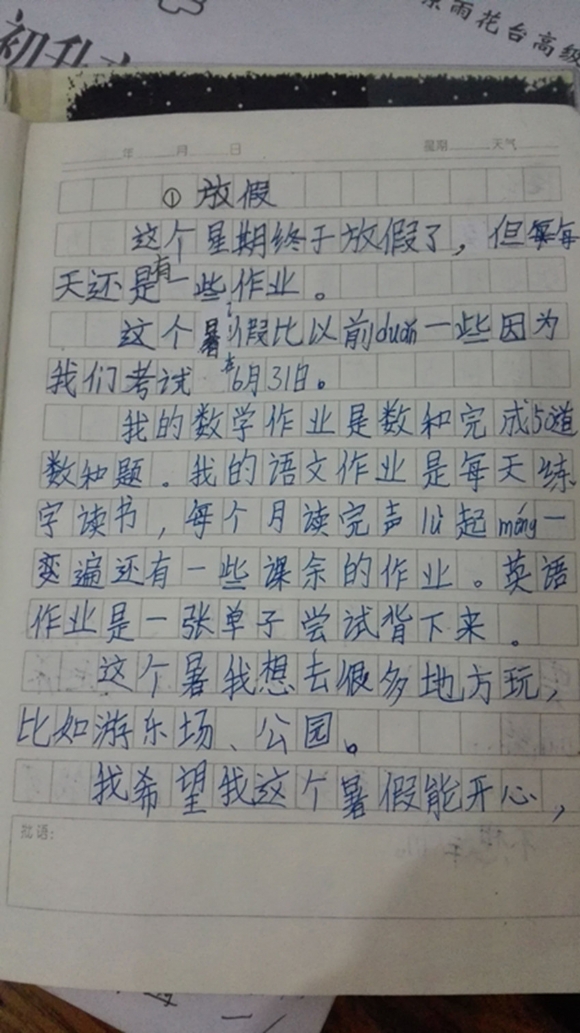 初升
京雨花台高级
年 月 日 星期 天气
① 放假
这个星期终于放假了，但每
天还是有一些作业。
这个暑假比以前duǎn一些因为
我们考试 6月31日。
我的数学作业是数和完成50道
数和题。我的语文作业是每天练
字读书，每个月读完声lǜ起méng一
变遍还有一些课余的作业。英语
作业是一张单子尝试背下来。
这个暑我想去很多地方玩，
比如游乐场、公园。
我希望我这个暑假能开心，
批语：